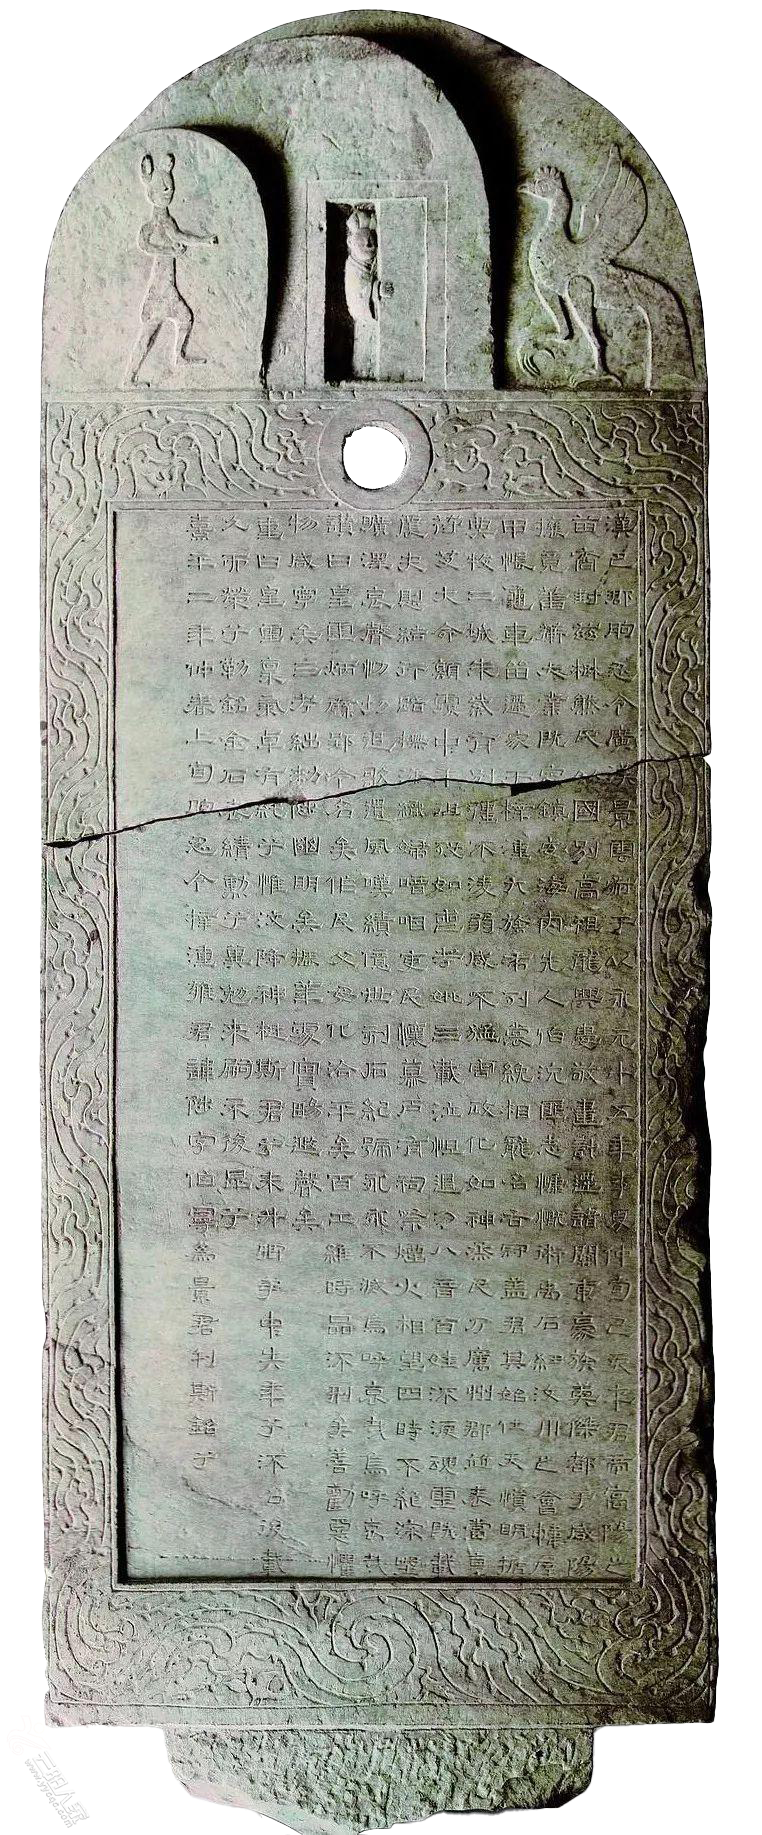 漢巴郡朐忍令廣漢景雲叔于以永元十五年季夏仲旬己亥卒君帝高陽之
苗裔封茲楚熊氏以國別高祖龍興婁敬畫計遷諸關東豪族英傑都于咸陽
攘竟蕃衛大業既定鎮安海內先人伯沇匪志慷慨術禹石紐汶川之會幃屋
甲帳龜車留遰家于梓湩九族布列裳絻相襲名右冠蓋君其始仕天資明哲
典牧二城朱紫有別彊不淩弱威不猛害政化如神烝民乃厲州郡並表當亨
符艾大命顛覆中年徂歿如喪考妣三載泣怛遏勿八音百姓流淚魂靈既載
農夫惻結行路撫涕織婦喑咽吏民懷慕戶有祠祭煙火相望四時不絕深野
曠澤哀聲忉切追歌遺風嘆績億世刻石紀號永永不滅烏呼哀哉烏呼哀哉
讚曰皇靈炳璧郢令名矣作民父母化洽平矣百工維時品流刑矣善勸惡懼
物咸寧矣三考絀敕陟幽明矣振華處實暘遐聲矣
重曰皇靈稟氣卓有純兮惟汶降神梃斯君兮未升卿尹中失年兮流名後載
久而榮兮勒銘金石表績勳兮冀勉來嗣示後昆兮
熹平二年仲春上旬朐忍令梓湩雍君諱陟字伯寧為景君刊斯銘兮